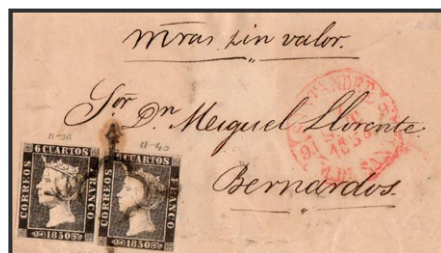 mras sin valor.
Sor. Dn. Meiguel Llorente.
Bernardos
6 CUARTOS
CORREOS
FRANCO
1850
CUARTOS
CORREOS
FRANCO
1850